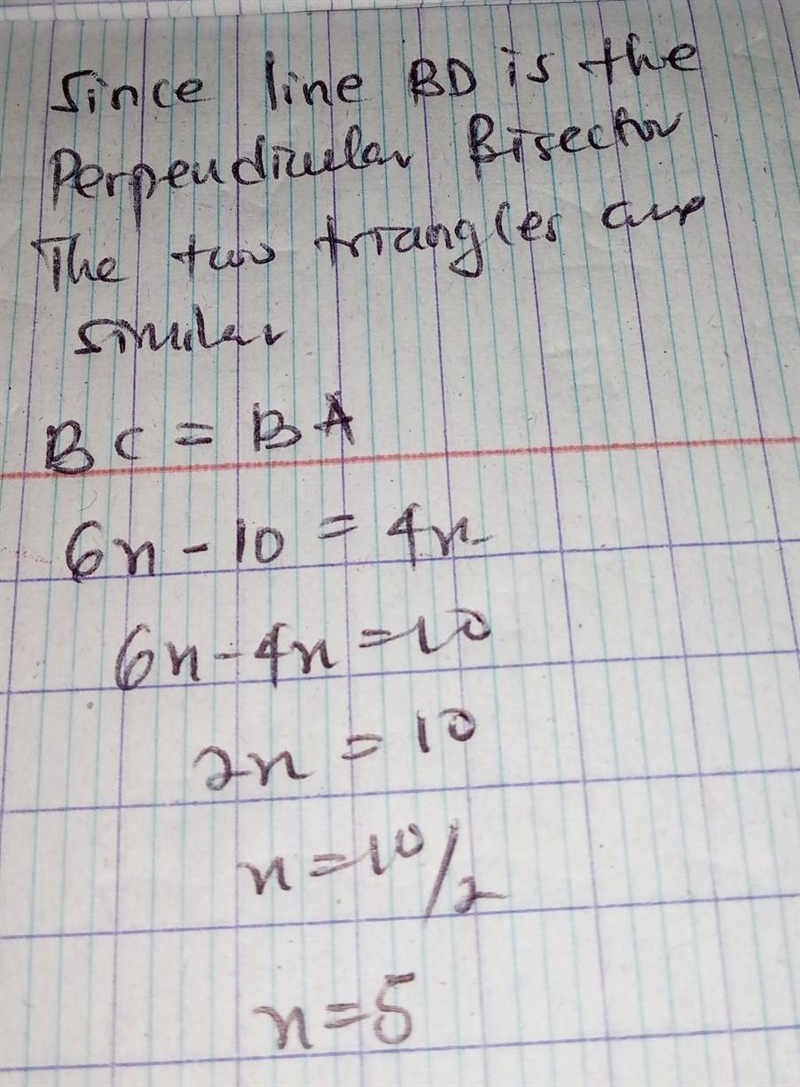 Since line BD is the
Perpendicular Bisector
The two triangles are
similar
BC = BA
6x - 10 = 4x
6x - 4x = 10
2x = 10
x = 10/2
x = 5